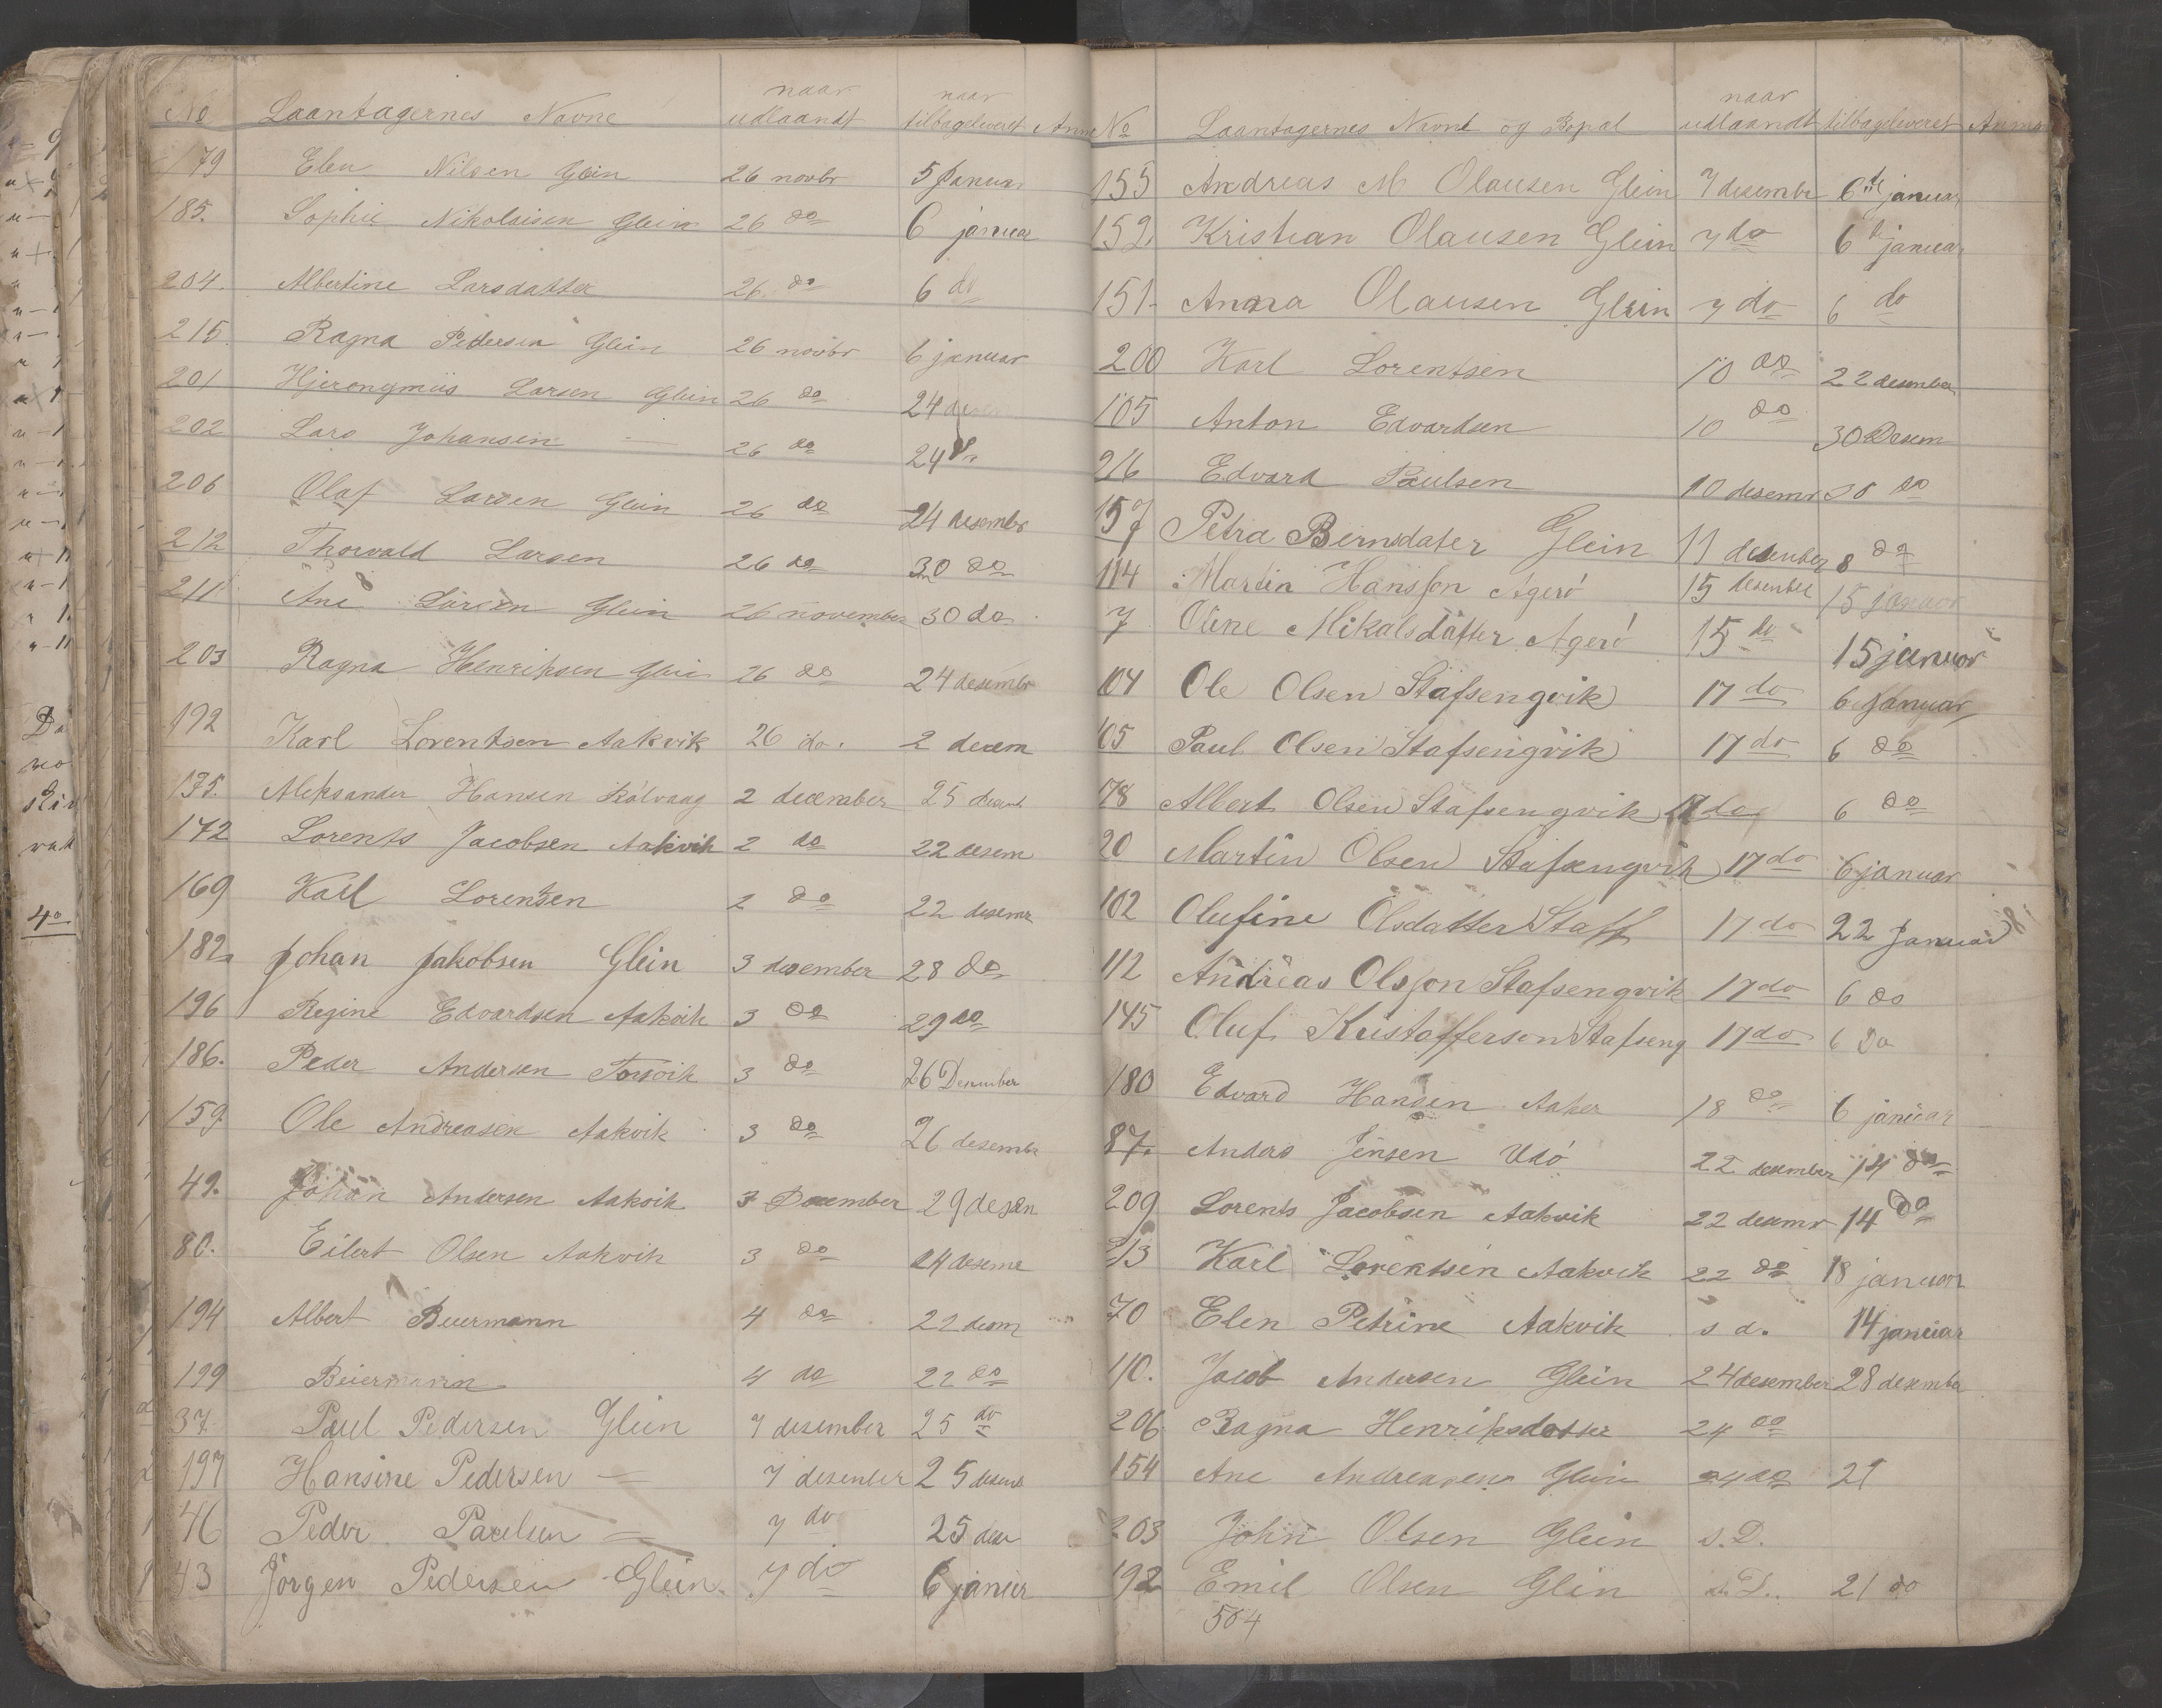 No Laantagernes Navne naar udlaandt naar tilbageleveret Anm
179 Elen Nilsen Glein 26 novbr 5 Januar
185. Sophie Nikolaisen Glein 26 do 6 januar
204. Albertine Larsdatter 26 do 6 do
215. Ragna Pedersen Glein 26 novbr 6 januar
201 Hjeronymus Larsen Glein 26 do 24 desem
202 Lars Johansen — 26 do 24
206 Olaf Larsen Glein 26 do 24 desembr
212 Thorvald Larsen 26 do 30 do
211. Ane Larsen Glein 26 november 30 do
203 Ragna Henriksen Glein 26 do 24 desembr
192 Karl Lorentsen Aakvik 26 do. 2 decem
135. Aleksander Hansen Kólvaag 2 december 25 desemb
172 Lorents Jacobsen Aakvik 2 do 22 desem
169 Karl Lorentsen 2 do 22 desemr
182 Johan Jakobsen Glein 3 desember 28 do
196 Regine Edvardsen Aakvik 3 do 29 do
186. Peder Andersen Forsvik 3 do 26 Desember
159. Ole Andreasen Aakvik 3 do 26 desembr
49. Johan Andersen Aakvik 3 December 29 desem
80. Eilert Olsen Aakvik 3 do 24 desemr
194 Albert Beuermann 4 do 22 desem
199 Beiermann 4 do 22 do
37. Paul Pedersen Glein 7 desember 25 do
197 Hansine Pedersen — 7 desember 25 desemb
46 Peder Paulsen — 7 do 25 dese
43 Jørgen Pedersen Glein. 7 do 6 janier
No Laantagernes Navne og Bopal naar udlaandt tilbageleveret Anm
155 Andreas M Olausen Glein 7 desembr 6te januar
152. Kristian Olausen Glein 7 do 6te januar
151. Anna Olausen Glein 7 do 6 do
200 Karl Lorentsen 10 do 22 desember
105 Anton Edvardsen 10 do 30 Desem
216 Edvard Paulsen 10 desemr 30 do
157 Petra Bernsdater Glein 11 desember 8 do
114 Martin Hansson Ageró 15 desember 15 januar
7 Oline Mikalsdatter Ageró 15 do 15 januar
104 Ole Olsen Stafsengvik 17 do 6 Januar
105 Paul Olsen Stafsengvik 17 do 6 do
178 Albert Olsen Stafsengvik 17 do 6 do
20 Martin Olsen Stafsengvik 17 do 6 januar
102 Olufine Olsdatter Staff 17 do 22 Januar
112 Andreas Olsson Stafsengvik 17 do 6 do
145 Oluf Kristofferson Stafseng 17 do 6 do
180 Edvard Hansen Aaker 18 do 6 januar
87. Anders Jensen Udó 22 desember 14 do
209 Lorents Jacobsen Aakvik 22 desemr 14 do
213 Karl Lorentsen Aakvik 22 do 18 januar
70 Elen Petrine Aakvik s d. 14 januar
110. Jacob Andersen Glein 24 desember 28 desember
206. Ragna Henriksdatter 24 do
154 Ane Andreasen Glein 24 do 29
203 John Olsen Glein s. D.
192 Emil Olsen Glein s. D. 21 do
504